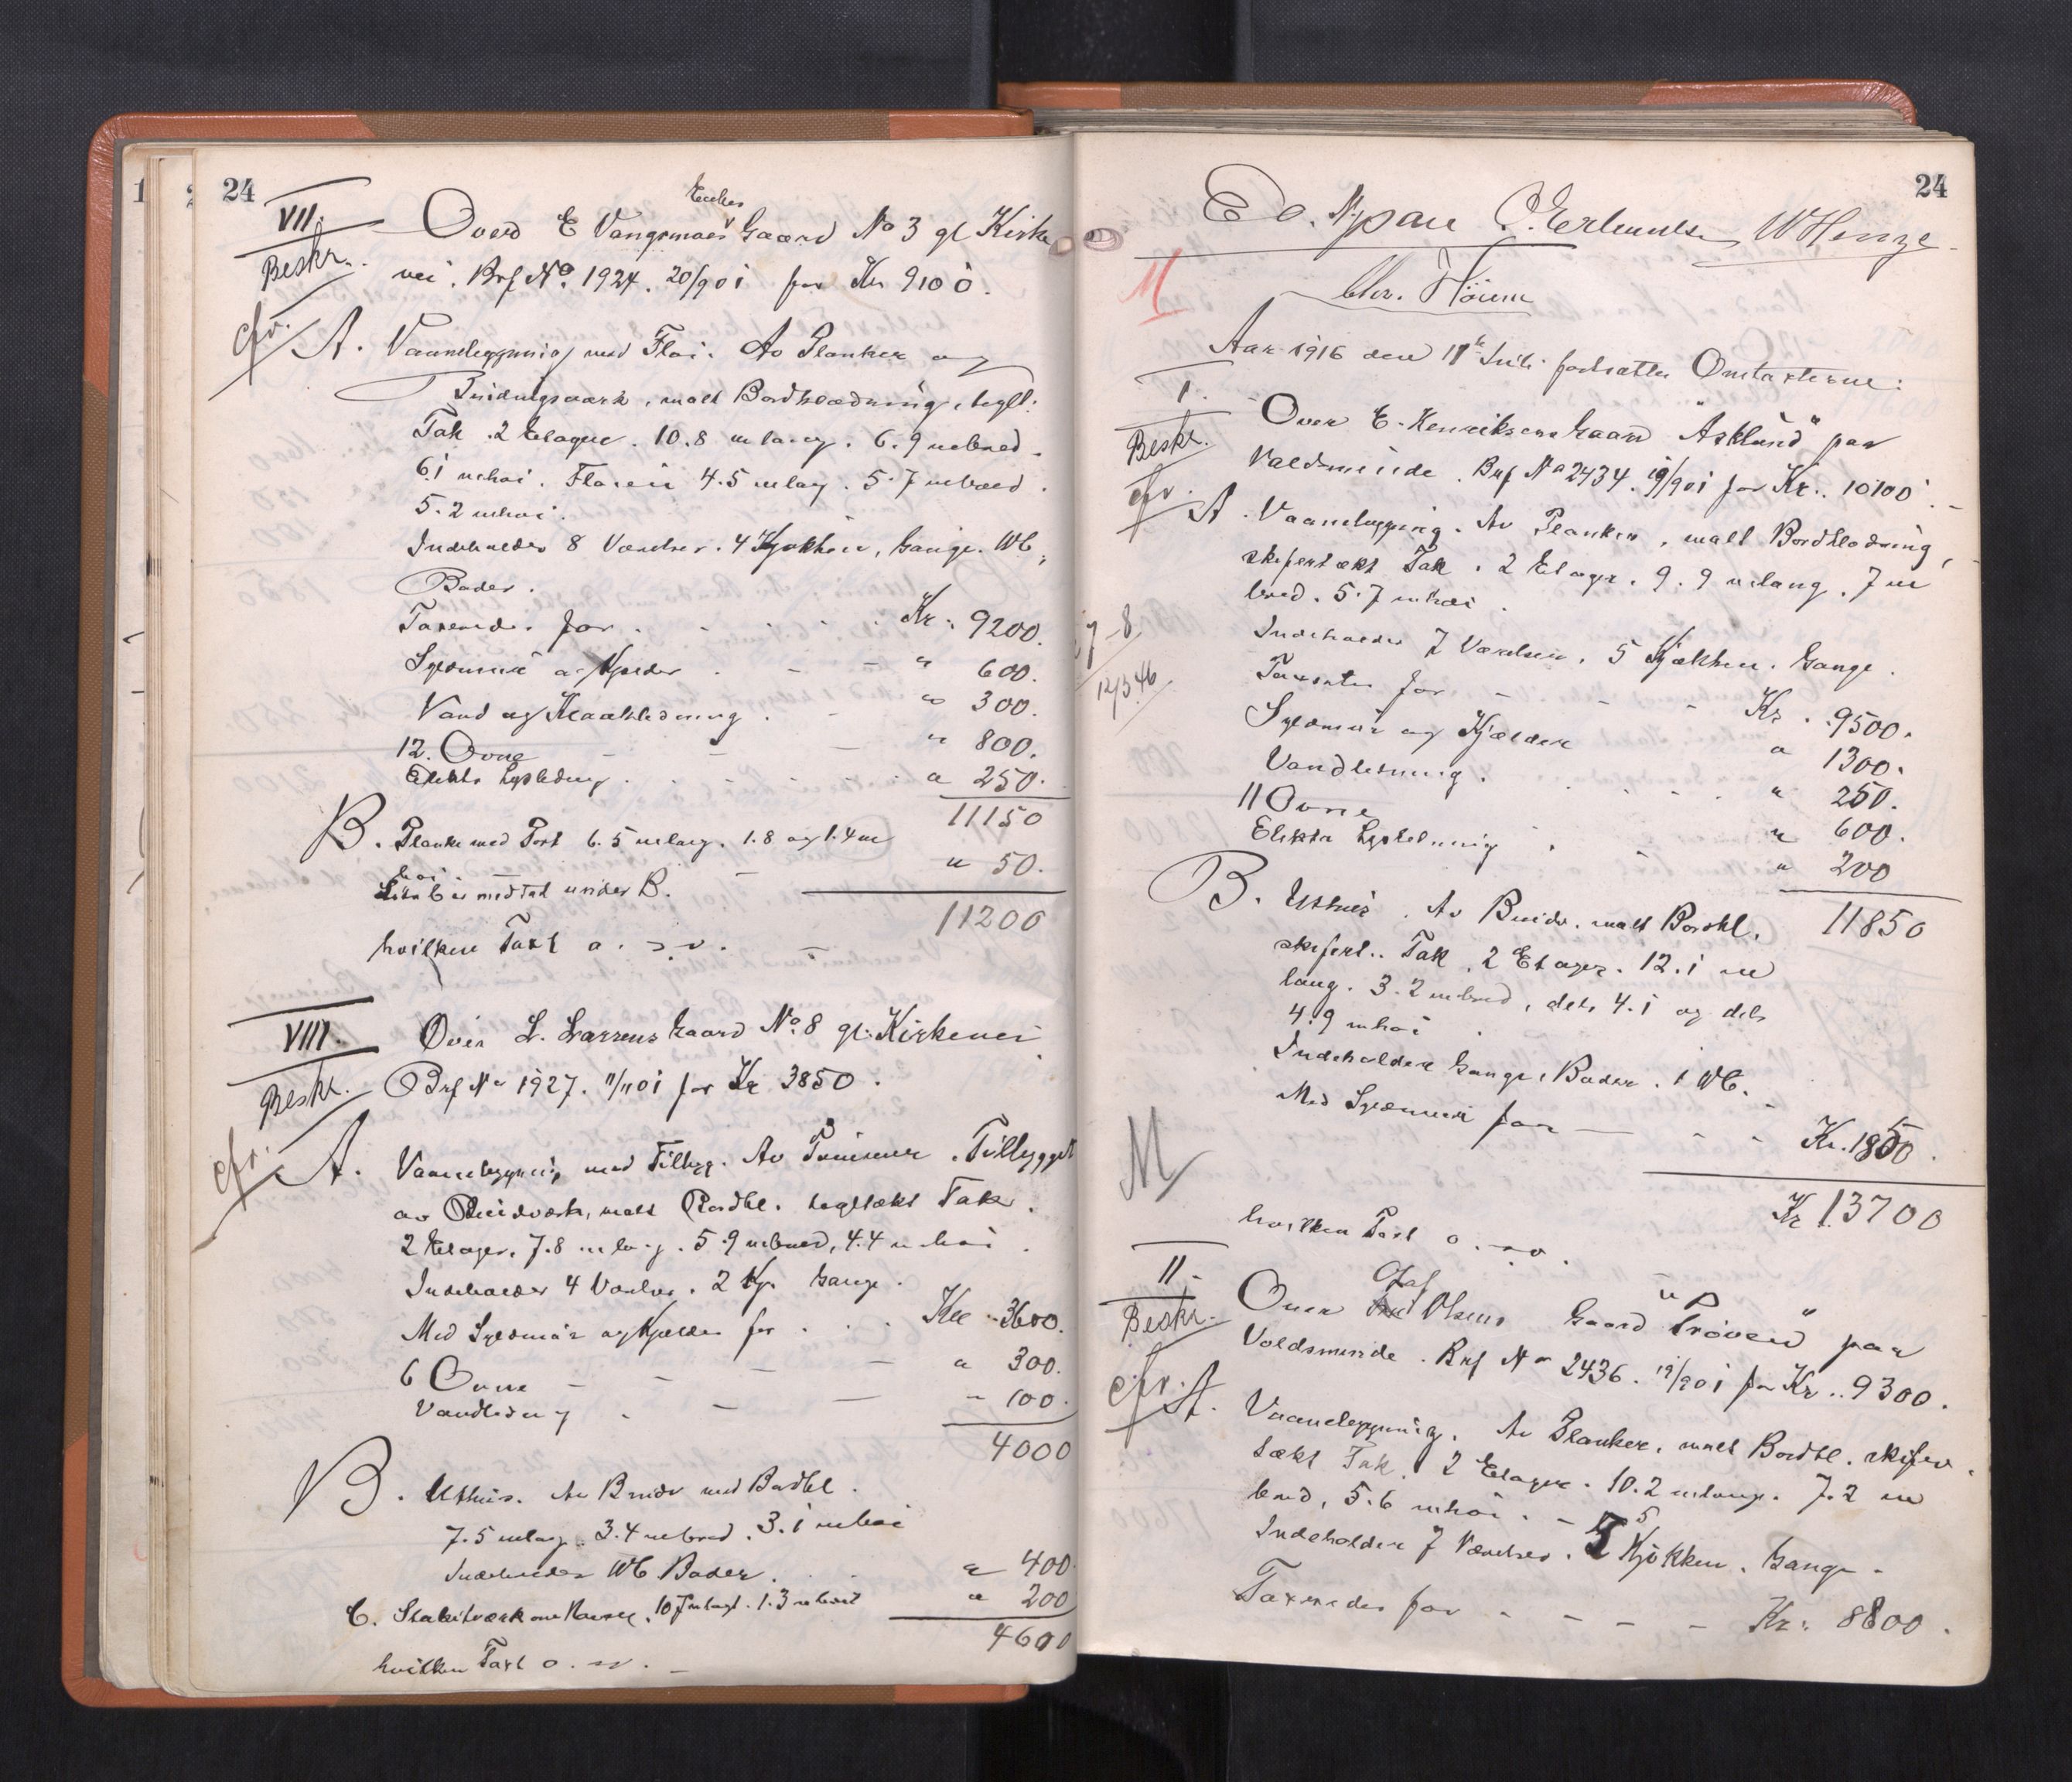 24
VII.
Enkes
Over E Vangsmoes Gaard No 3 gl Kirke
Beskr.
vei. Brf No. 1924. 20/901 for Kr 9100.
cfr.
A. Vaanebygning med Fløi. Av Planker og
Bindingsværk, malt Bordklædning, teglt.
Tak. 2 Etager. 10.8 m lang. 6.9 m bred.
6.1 m høi. Fløien 4.5 m lang. 5.7 m bred.
5.2 m høi.
Indeholder 8 Værelser. 4 Kjøkken, Gange. WC,
Boder.
Taxeredes for . . . . Kr. 9200.
Syldmur og Kjelder . - - " 600.
Vand og Kloakledning . - " 300.
12. Ovne - - - " 800.
Elektr. Lysledning . . . . . " 250.
11150
B. Planke med Port 6.5 m lang. 1.8 og 1.4 m
høi. - - " 50.
Litr C er medtat under B.
11200
hvilken Taxt o. s. v. -
VIII.
Over L. Larsens Gaard No. 8 gl. Kirkevei
Beskr.
Brf No 1927. 11/1101 for Kr 3850.
cfr.
A. Vaanebygning med Tilbyg. Av Tømmer. Tilbygget
av Bindværk, malt Bordkl. tegltækt Tak.
2 Etager. 7.8 m lang. 5.9 m bred, 4.4 m høi.
Indeholder 4 Værelser. 2 Kjø. Gange.
Med Syldmur og Kjælder for . . . Kr 3600.
6 Ovne - - - - " 300.
Vandledning . - - " 100.
4000
B. Uthus. Av Bindv med Bordkl.
7.5 m lang. 3.4 m bred. 3.1 m høi
Indeholder WC Boder. . . " 400
C. Stakitværk om Haven. 107 m langt. 1.3 m høit " 200
4600
hvilken Taxt o. s. v. -
24
Ed. Nypan O. Erlandsen W Henze
Chr. Höium
M
Aar 1916 den 11te Juli fortsattes Omtaxterne:
I.
Over E. Henriksens Gaard "Asklund" paa
Beskr.
Valdsminde. Brf No 2434. 19/901 for Kr.. 10100. -
cfr.
A. Vaanebygning. Av Planker, malt Bordklædning,
skifertækt Tak. 2 Etager. 9.9 m lang. 7 m
bred. 5.7 m høi.
Indeholder 7 Værelser. 5 Kjøkken. Gange.
7-8
12/3 46
Taxertes for - - - Kr. . 9500.
Syldmur og Kjælder " 1300.
Vandledning. . . . . " 250.
11 Ovne " 600.
Elektr Lysledning . . " 200
11850
B. Uthus. Av Bindv. malt Bordkl.
skifert.. Tak. 2 Etager. 12.1 m
lang. 3.2 m bred, dels 4.1 og dels
4.9 m høi.
Indeholder Gange, Boder. 1 WC.
Med Syldmur for - - - Kr. 1850.
M
Kr 13700
hvilken Taxt o. s. v.
II.
Olaf
Over Olsens Gaard "Prøven" paa
Beskr.
Voldsminde. Brf No 2436. 19/901 for Kr.. 9300.
cfr.
A. Vaanebygning. Av Planker, malt Bordkl. skifer-
tækt Tak. 2 Etager. 10.2 m lang. 7.2 m
bred, 5.6 m høi. -
5
Indeholder 7 Værelser. Kjøkken. Gange.
Taxeredes for - - - - Kr. 8800.